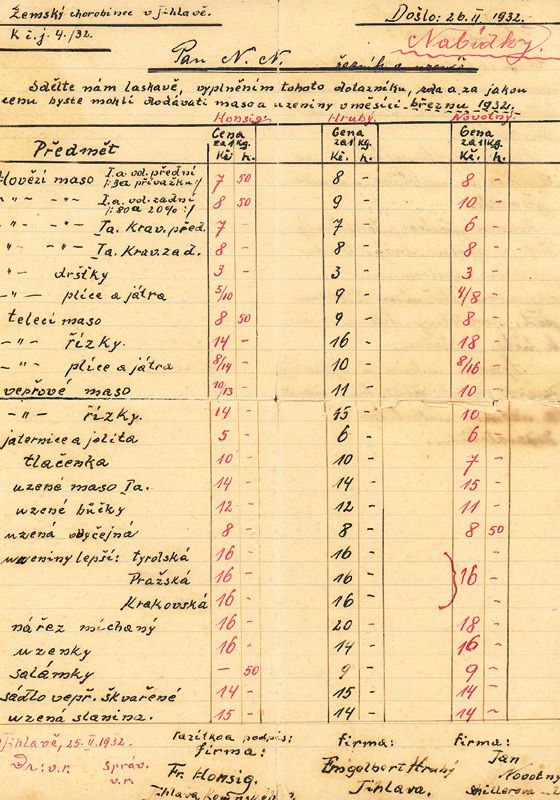 Zemský chorobinec v Jihlavě. Došlo: 26.II.1932.
K č.j. 4./32. Nabídky.
Pan N. N. řezník a uzenář
Sdělte nám laskavě, vyplněním tohoto dotazníku, zda a za jakou
cenu byste mohli dodávati maso a uzeniny v měsíci březnu 1932.
Honsig. Hrubý. Novotný
Předmět Cena za 1 kg. Kč. h. Cena za 1 kg. Kč. h. Cena za 1 kg. Kč. h.
Hovězí maso I.a vol. přední /: bez přívažku :/ 7 50 8 - 8 -
-"- -"- I.a vol. zadní /: 80 a 20% :/ 8 50 9 - 10 -
-"- -"- Ia. Krav. před. 7 - 7 - 6 -
-"- -"- Ia. Krav. zad. 8 - 8 - 8 -
-"- dršťky 3 - 3 - 3 -
-"- plíce a játra 5/10 9 - 4/8 -
telecí maso 8 50 9 - 8 -
-"- řízky. 14 - 16 - 18 -
-"- plíce a játra 8/14 - 10 - 8/16 -
vepřové maso 10/13 - 11 - 10 -
-"- řízky. 14 - 15 - 10 -
jaternice a jelita 5 - 6 - 6 -
tlačenka 10 - 10 - 7 -
uzené maso Ia. 14 - 14 - 15 -
uzené bůčky 12 - 12 - 11 -
uzená obyčejná 8 - 8 - 8 50
uzeniny lepší: tyrolská 16 - 16 - -
Pražská 16 - 16 - 16 -
Krakovská 16 - 16 - -
nářez míchaný 16 - 20 - 18 -
uzenky 16 - 14 - 16 -
salámky - 50 9 - 9 -
sádlo vepř. škvařené 14 - 15 - 14 -
uzená slanina. 15 - 14 - 14 -
Jihlavě, 25.II.1932. Razítko a podpis: firma: firma: firma:
v.r. Správ. v.r. Fr. Honsig. Engelbert Hrubý Jan Novotný
Jihlava Jihlava. Schillerova